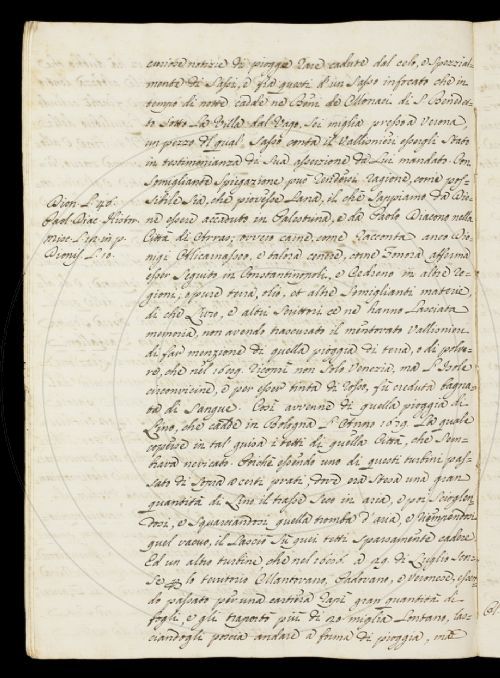 curiose notizie di piogge rare cadute dal celo, e spezzial-
mente di Sassi, e fra questi d'un Sasso infocato che in
tempo di notte cadde ne Beni de Monaci di S. Benedet-
to sotto La Villa dal Vago, sei miglia presso a Verona,
un pezzo del qual Sasso conta il Vallisnieri essergli stato
in testimonianza di sua asserzione da Lui mandato. Con
somigliante spiegazione può rendersi ragione, come pos-
sibile sia, che piovesse Lana, il che sappiamo da Dio-
ne essere accaduto in Palestina, e da Paolo Diacono nella
Città di Atrras; ovvero carne, come racconta anco Dio-
nigi Alicarnasseo, e talora cenere, come Zonara afferma
esser seguito in Constantinopoli, e Cedreno in altre re-
gioni; eppure terra, olio, et altre somiglianti materie,
di che Livio, e altri Scrittori ce ne hanno Lasciata
memoria, non avendo trascurato il mentovato Vallisnieri
di far menzione di quella pioggia di terra, o di polve-
re, che nel 1689. ricoprì non solo Venezia, ma L'Isole
circonvicine, e per esser tinta di rosso, fu creduta
di Sangue. Così avvenne di quella pioggia di
Lino, che cadde in Bologna L'Anno 1679. La quale
coperse in tal guisa i tetti di quella Città, che sem-
brava nevicato. Poichè essendo uno di questi turbini pas-
sato di sopra a certi prati, dove era stesa una gran
quantità di Lino il trasse seco in aria, e poi scioglien-
dosi, e squarciandosi quella tromba d'aria, e riempendosi
quel vacuo, il Lasciò su quei tetti sparsamente cadere.
Ed un altro turbine, che nel 1686. a 29. di Luglio scor-
se lo territorio Mantovano, Padovano, e Veronese, essen-
do passato per una cartiera rapì gran quantità di
fogli, e gli trasportò più di 20 miglia Lontano, las-
ciandogli poscia andare a forma di pioggia, ma
Dion. L. 48.
Paol. Diac. Histor.
Dionis. L. 10.